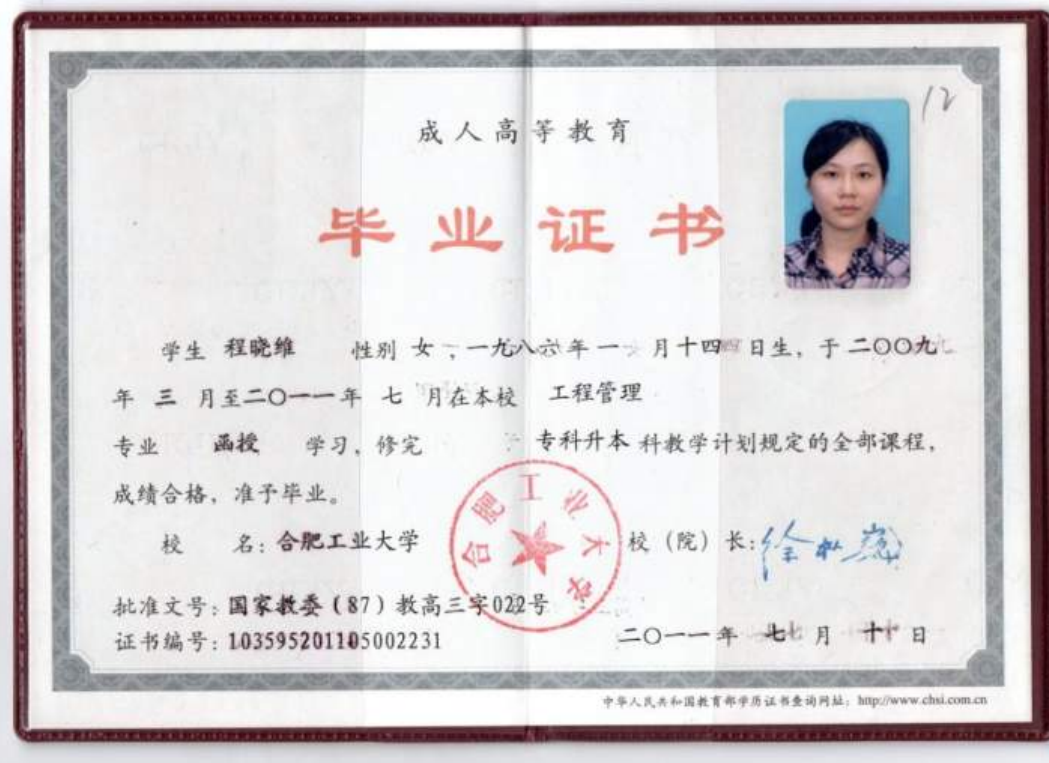 12
成人高等教育
毕业证书
学生 程晓维 性别 女,一九八六年一 月十四 日生,于二〇〇九
年 三 月至二〇一一年 七 月在本校 工程管理
专业 函授 学习,修完 专科升本 科教学计划规定的全部课程,
成绩合格,准予毕业。
校 名:合肥工业大学 校(院)长:
合肥工业大学
批准文号:国家教委(87)教高三字022号
证书编号:103595201105002231 二〇一一年 七 月 十 日
中华人民共和国教育部学历证书查询网址:http://www.chsi.com.cn